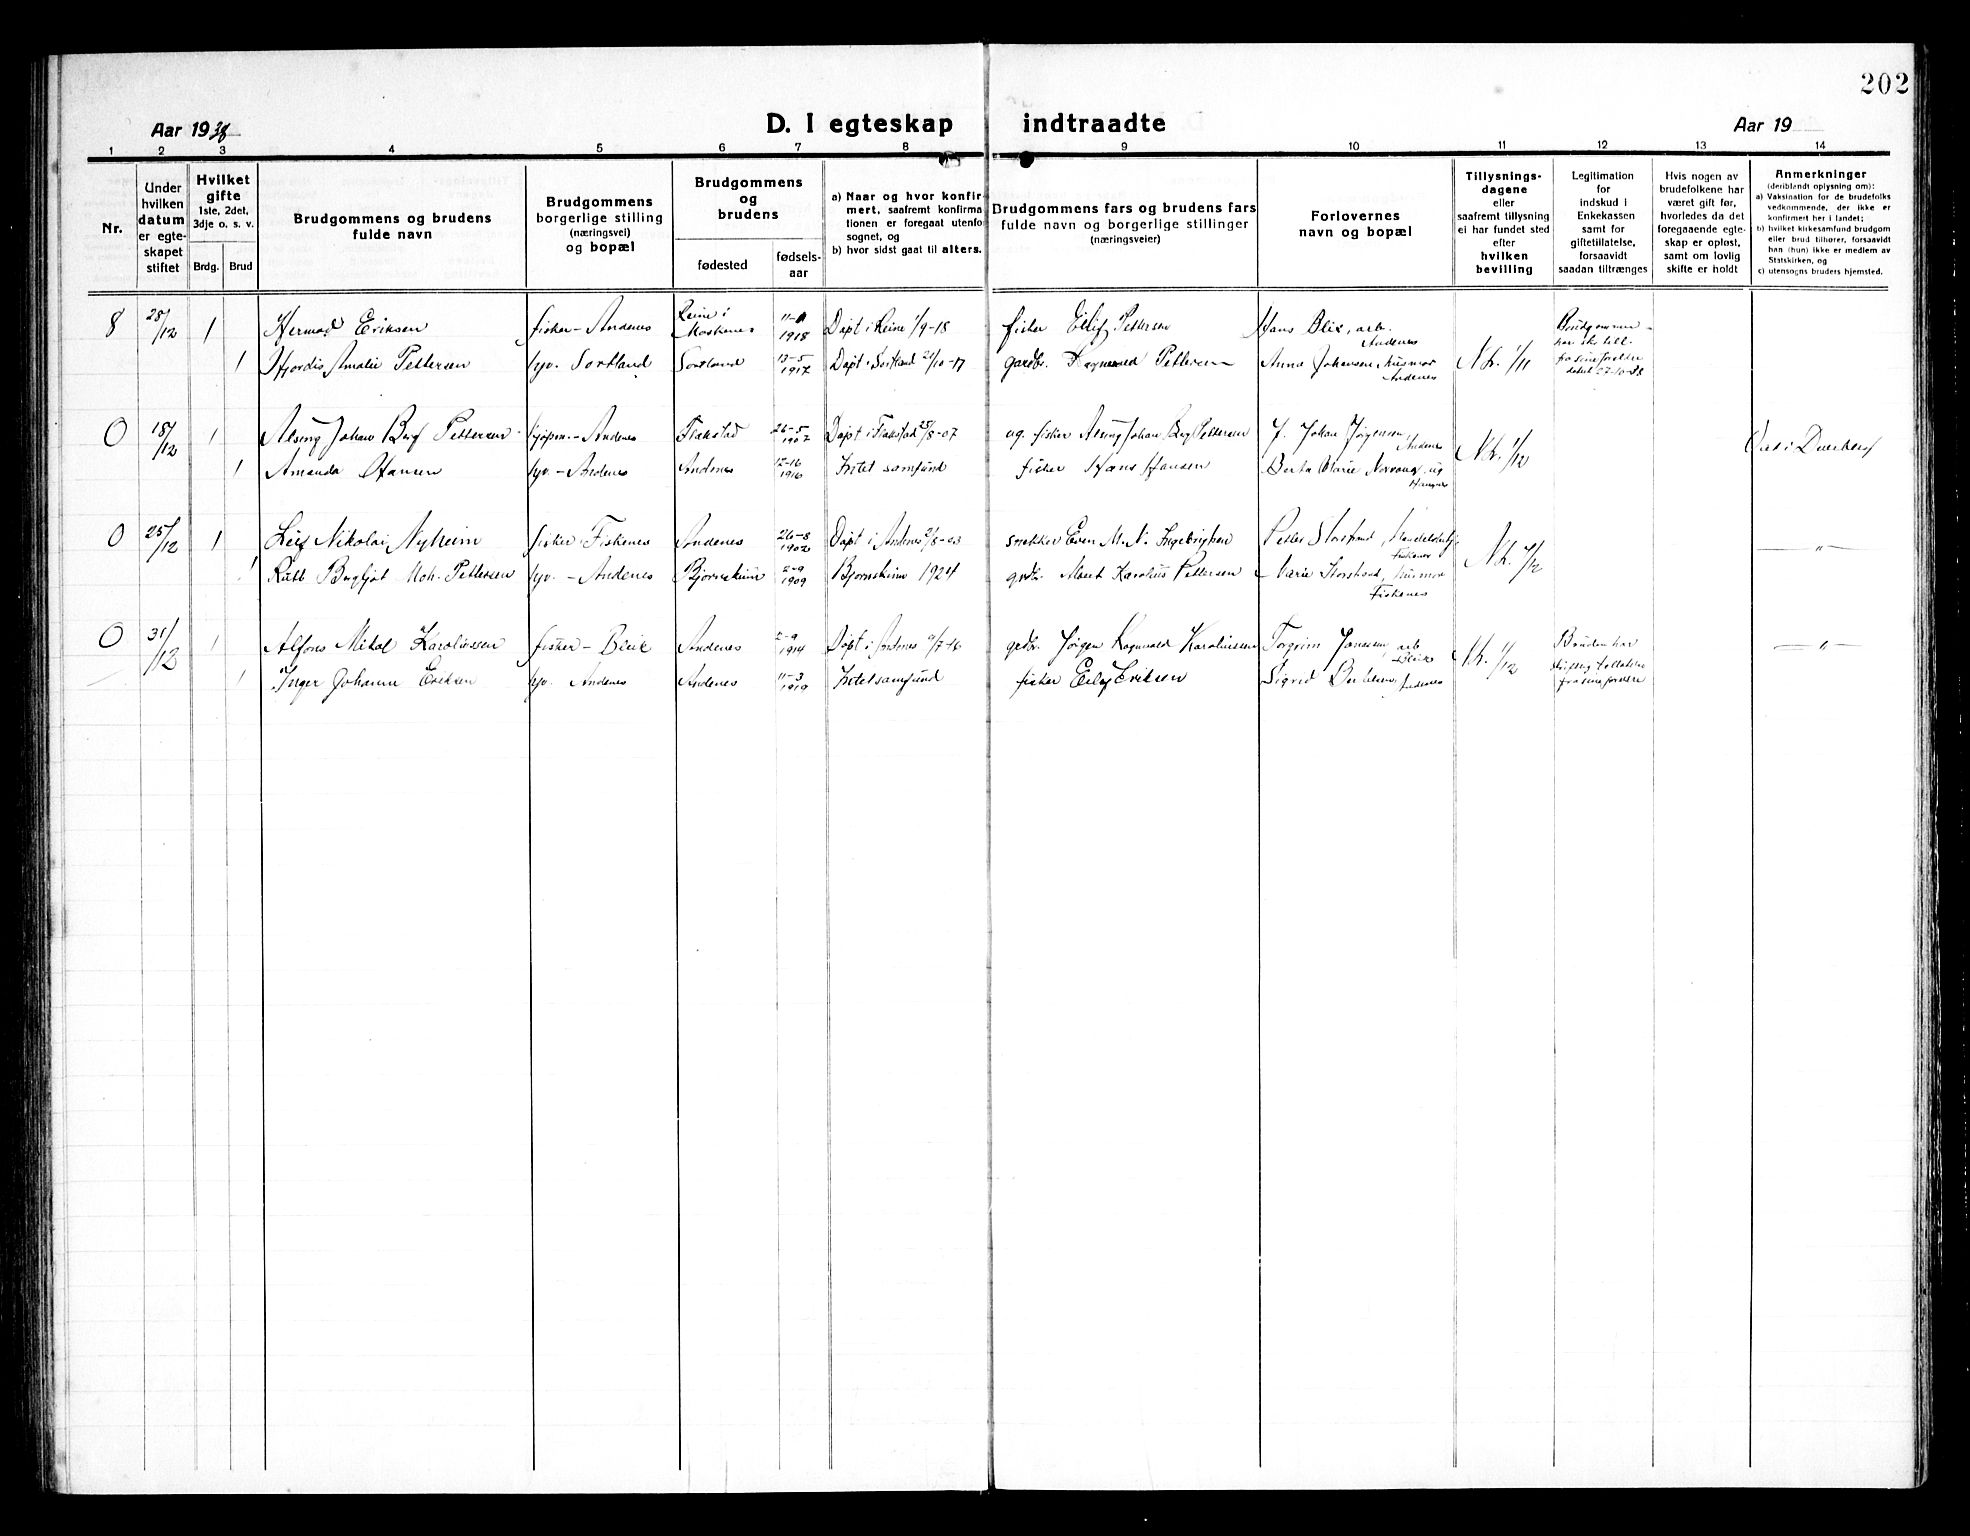 202
Aar 1938
D. I egteskap indtraadte
Aar 19
1 2 3 4 5 6 7 8 9 10 11 12 13 14
Nr.
Under hvilken datum er egteskapet stiftet
Hvilket gifte 1ste, 2det, 3dje o. s. v.
Brdg. Brud
Brudgommens og brudens fulde navn
Brudgommens borgerlige stilling (næringsvei) og bopæl
Brudgommens og brudens
fødested
fødsels-aar
a) Naar og hvor konfirmert, saafremt konfirmationen er foregaat utenfo sognet, og
b) hvor sidst gaat til alters.
Brudgommens fars og brudens fars fulde navn og borgerlige stillinger (næringsveier)
Forlovernes navn og bopæl
Tillysnings-dagene eller saafremt tillysning ei har fundet sted efter hvilken bevilling
Legitimation for indskud i Enkekassen samt for giftetillatelse, forsaavidt saadan tiltrænges
Hvis nogen av brudefolkene har været gift før, hvorledes da det foregaaende egte-skap er opløst, samt om lovlig skifte er holdt
Anmerkninger (deriblandt oplysning om):
a) Vaksination for de brudefolks vedkommende, der ikke er konfirmert her i landet;
b) hvilket kirkesamfund brudgom eller brud tilhører, forsaavidt han (hun) ikke er medlem av Statskirken, og
c) utensogns bruders hjemsted.
8 28/12 1 Hermod Eriksen fisker - Andenes Reine i Moskenes 1918 Døpt i Reine 1/9-18 fisker Pettersen Hans Blix, arb. Andenes
1 Hjordis Amalie Pettersen hjv. Sortland Sortland 13-5 1917 Døpt i Sortland 21/10-17 gardbr. Pettersen Anna Johansen husmor Andenes Nk. 1/11 Brudgommen har till. fra sine foreldre datert 27-10-38
0 18/12 1 Johan Berg Pettersen - Andenes Flakstad 26-5 1907 Døpt i Flakstad 25/8-07 ug. fisker Johan Berg Pettersen J. Johan Jørgensen, Andenes
1 Amanda Hansen hjv. - Andenes Andenes 12-16 1916 Intet samfund fisker Hans Hansen Berta Marie Nk. 1/12 i Dverberg
0 25/12 1 Leif Nikolai Nyheim fisker Fiskenes Andenes 26-8 1902 Døpt i Andenes smekker Even M. N. Ingebrigtsen Peder Storstrand, Fiskenes — " —
1 Bergljot Pettersen hjv. - Andenes Bjørnskinn 2-9 1909 Bjørnskinn 1924 grdbr. Karolius Pettersen Marie Storstrand, husmor Fiskenes Nk.
0 31/12 1 Alfons Mikal Karoliussen fisker - Bleik Andenes 2-9 1914 Døpt i Andenes grdbr. Jørgen Ragnvald Karoliussen Torgrim Jansen, arb Bleik Brudens har — " —
1 Inger Johanne Eriksen hjv. Andenes Andenes 11-3 1919 Intet samfund fisker Eriksen Sigrid Andenes Nk. 1/12 fra sine foreldre